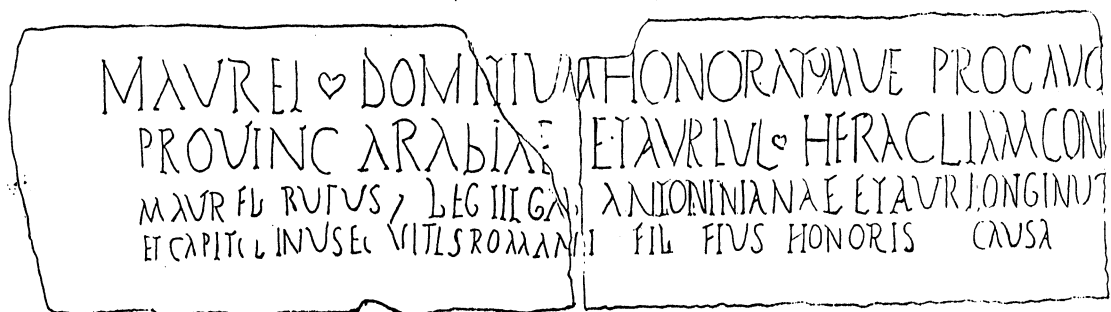 MAUREL ♡ DOMNIUM HONORATUM VE PROC AUG
PROVINC ARABIAE ET AUR IUL ♡ HERACLIAM CONI
M AUR FL RUFUS 7 LEG III GAL ANTONINIANAE ET AUR LONGINUS
ET CAPITOLINUS EQ VITIS ROMANI FIL EIUS HONORIS CAUSA